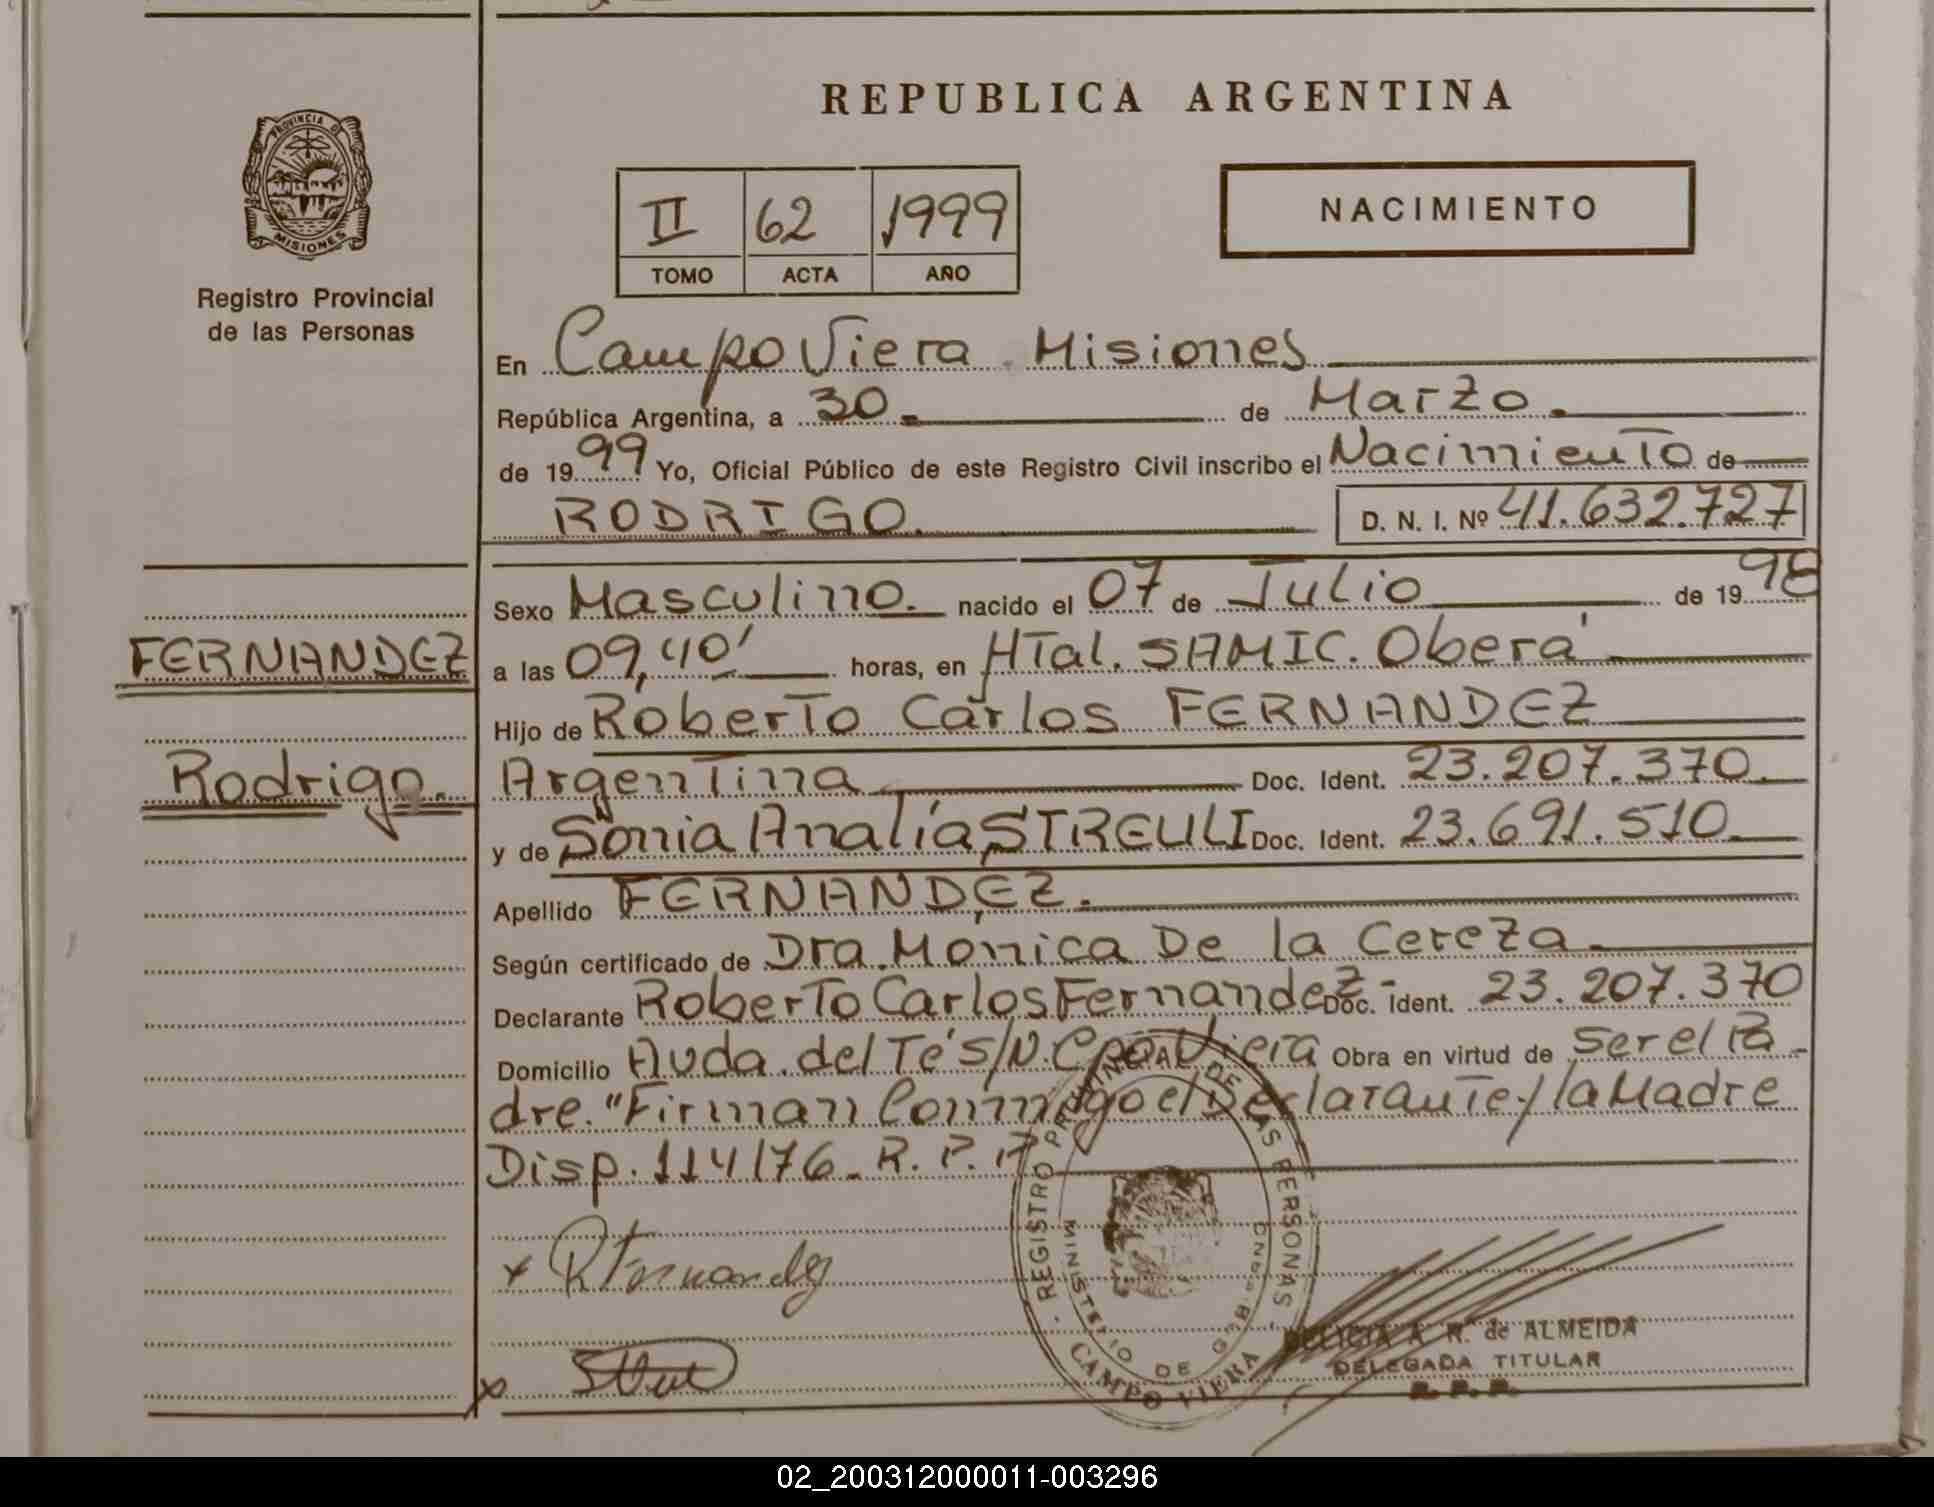 REPUBLICA ARGENTINA
PROVINCIA DE
MISIONES
Registro Provincial
de las Personas
II 62 1999
TOMO ACTA AÑO
NACIMIENTO
En Campo Viera. Misiones
República Argentina, a 30. de Marzo.
de 1999 Yo, Oficial Público de este Registro Civil inscribo el Nacimiento de
RODRIGO. D. N. I. Nº 41.632.727
FERNANDEZ
Rodrigo.
Sexo Masculino. nacido el 07 de Julio de 1998
a las 09,40' horas, en HTal. SAMIC. Oberá
Hijo de Roberto Carlos FERNANDEZ
Argentina Doc. Ident. 23.207.370.
y de Sonia Analía STREULI Doc. Ident. 23.691.510
Apellido FERNANDEZ.
Según certificado de Dra. Mónica De la Cereza.
Declarante Roberto Carlos Fernandez.- Doc. Ident. 23.207.370
Domicilio Avda. del Té S/N. Cpo Viera Obra en virtud de ser el Pa-
dre. "Firman Conmigo el Declarante y la Madre
Disp. 114/76. R. P. P.
x RFernandez
x
REGISTRO PROVINCIAL DE LAS PERSONAS
MINISTERIO DE GOBIERNO
CAMPO VIERA
DELICIA A. R. de ALMEIDA
DELEGADA TITULAR
R. P. P.
02_200312000011-003296